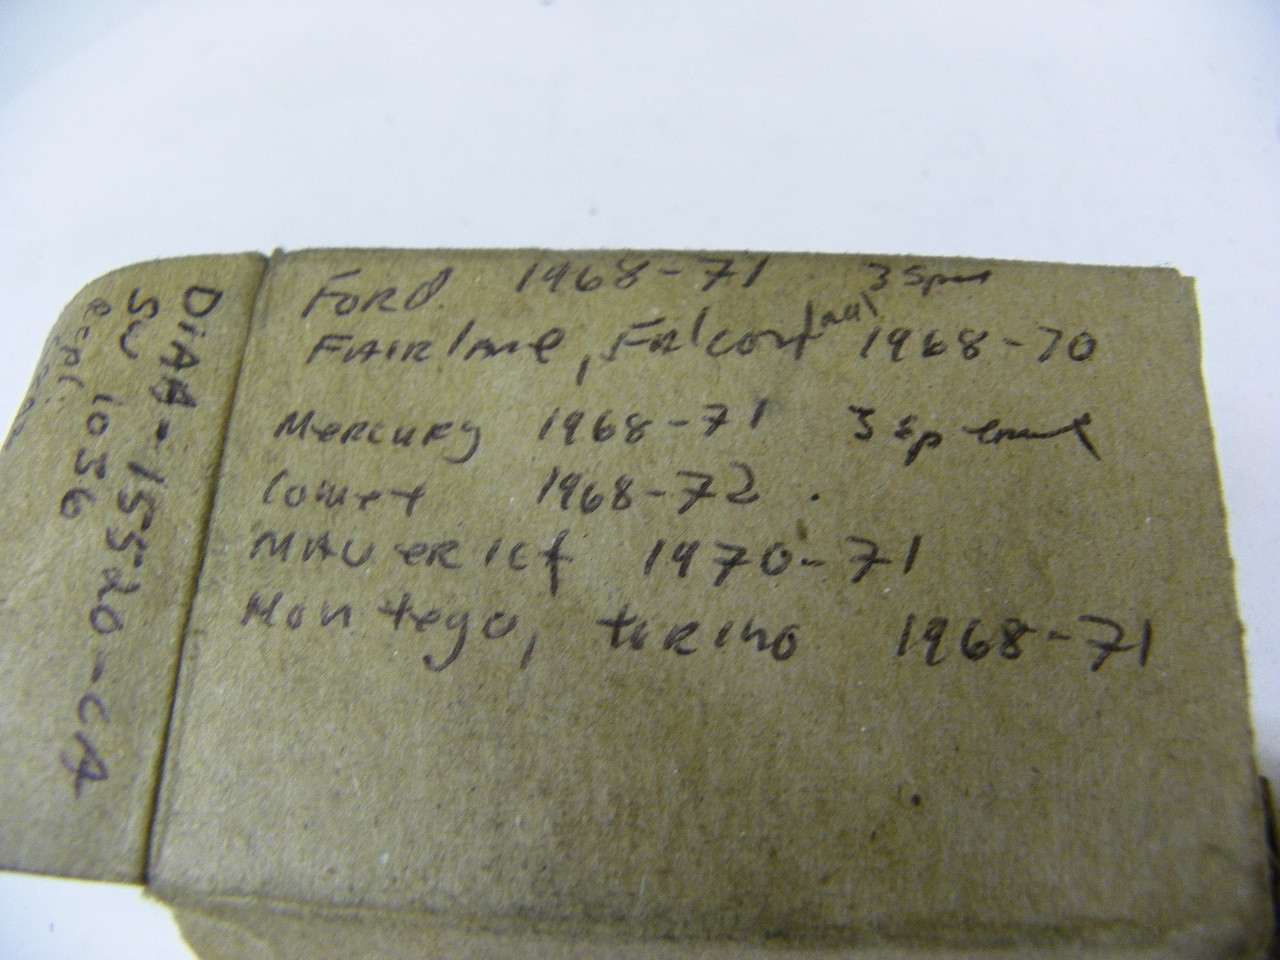 Ford 1968-71 3 sp
FAIRlane, Falcon 1968-70
Mercury 1968-71 3 sp
Comet 1968-72
MAVerick 1970-71
Montego, torino 1968-71
DiAA-15520-CA
SW 1036